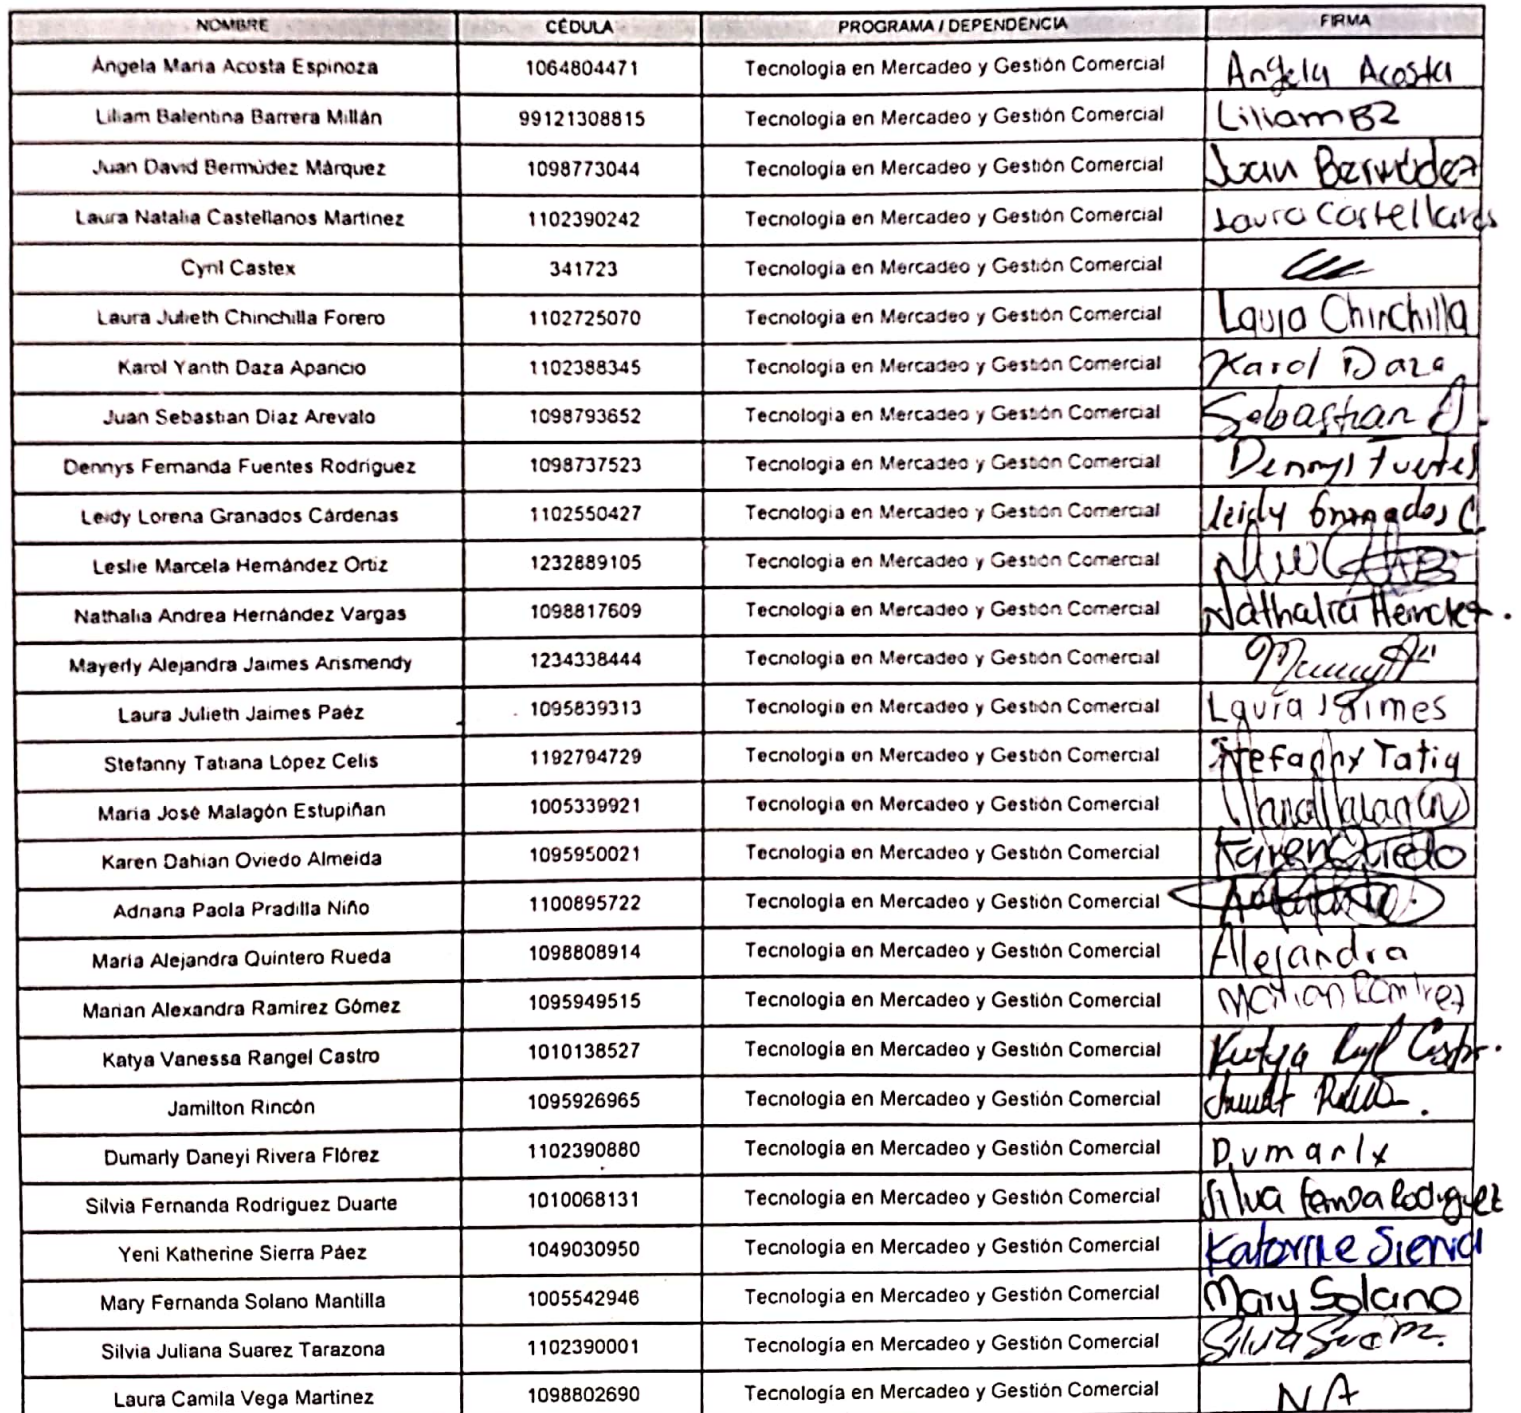 NOMBRE CÉDULA PROGRAMA / DEPENDENCIA FIRMA
Ángela María Acosta Espinoza 1064804471 Tecnología en Mercadeo y Gestión Comercial Angela Acosta
Liliam Balentina Barrera Millán 99121308815 Tecnología en Mercadeo y Gestión Comercial Liliam B2
Juan David Bermúdez Márquez 1098773044 Tecnología en Mercadeo y Gestión Comercial Juan Bermúdez
Laura Natalia Castellanos Martínez 1102390242 Tecnología en Mercadeo y Gestión Comercial Laura Castellanos
Cyril Castex 341723 Tecnología en Mercadeo y Gestión Comercial
Laura Julieth Chinchilla Forero 1102725070 Tecnología en Mercadeo y Gestión Comercial Laura Chinchilla
Karol Yanth Daza Aparicio 1102388345 Tecnología en Mercadeo y Gestión Comercial Karol Daza
Juan Sebastian Diaz Arevalo 1098793652 Tecnología en Mercadeo y Gestión Comercial Sebastian D.
Dennys Fernanda Fuentes Rodríguez 1098737523 Tecnología en Mercadeo y Gestión Comercial Dennys Fuentes
Leidy Lorena Granados Cárdenas 1102550427 Tecnología en Mercadeo y Gestión Comercial Leidy Granados C.
Leslie Marcela Hernández Ortiz 1232889105 Tecnología en Mercadeo y Gestión Comercial
Nathalia Andrea Hernández Vargas 1098817609 Tecnología en Mercadeo y Gestión Comercial Nathalia
Mayerly Alejandra Jaimes Arismendy 1234338444 Tecnología en Mercadeo y Gestión Comercial
Laura Julieth Jaimes Paéz 1095839313 Tecnología en Mercadeo y Gestión Comercial Laura Jaimes
Stefanny Tatiana López Celis 1192794729 Tecnología en Mercadeo y Gestión Comercial Stefanny Tatia
María José Malagón Estupiñan 1005339921 Tecnología en Mercadeo y Gestión Comercial
Karen Dahian Oviedo Almeida 1095950021 Tecnología en Mercadeo y Gestión Comercial Karen Oviedo
Adriana Paola Pradilla Niño 1100895722 Tecnología en Mercadeo y Gestión Comercial
María Alejandra Quintero Rueda 1098808914 Tecnología en Mercadeo y Gestión Comercial Alejandra
Marian Alexandra Ramírez Gómez 1095949515 Tecnología en Mercadeo y Gestión Comercial Marian Ramirez
Katya Vanessa Rangel Castro 1010138527 Tecnología en Mercadeo y Gestión Comercial Katya
Jamilton Rincón 1095926965 Tecnología en Mercadeo y Gestión Comercial
Dumarly Daneyi Rivera Flórez 1102390880 Tecnología en Mercadeo y Gestión Comercial Dumarly
Silvia Fernanda Rodríguez Duarte 1010068131 Tecnología en Mercadeo y Gestión Comercial Silvia Rodriguez
Yeni Katherine Sierra Páez 1049030950 Tecnología en Mercadeo y Gestión Comercial Katerine Sierra
Mary Fernanda Solano Mantilla 1005542946 Tecnología en Mercadeo y Gestión Comercial Mary Solano
Silvia Juliana Suarez Tarazona 1102390001 Tecnología en Mercadeo y Gestión Comercial Silvia
Laura Camila Vega Martínez 1098802690 Tecnología en Mercadeo y Gestión Comercial NA